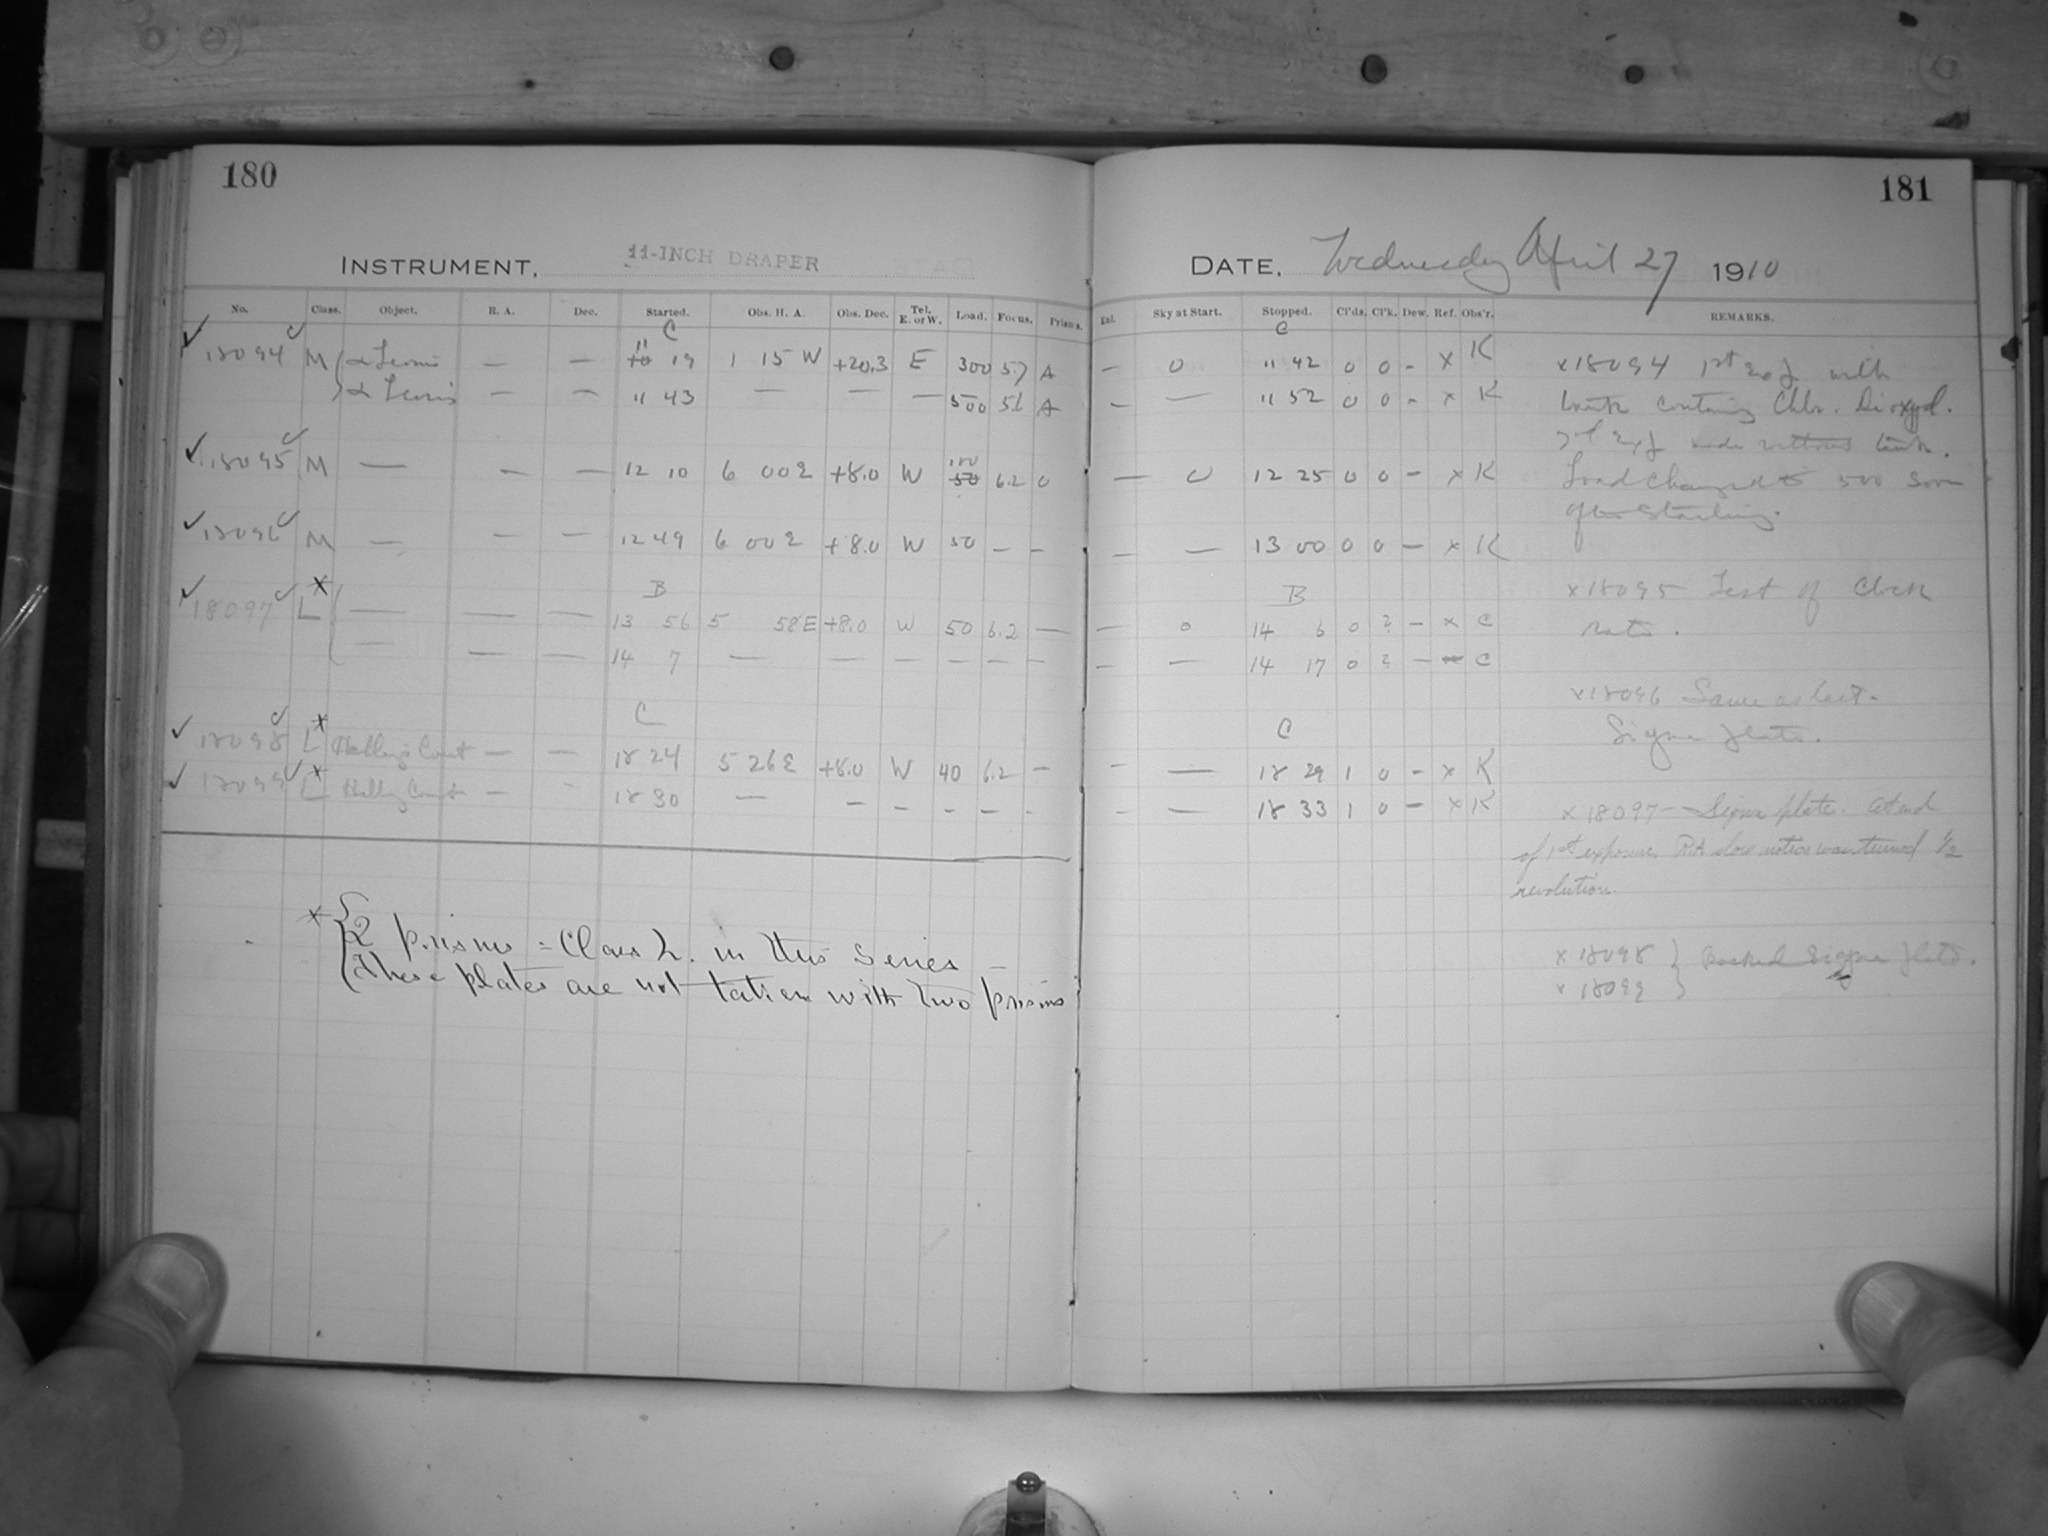 180
181
INSTRUMENT, 11-INCH DRAPER
DATE, Wednesday April 27 1910
No. Class. Object. R. A. Dec. Started. Obs. H. A. Obs. Dec. Tel. E. or W. Load. Focus. Prisms. Ext. Sky at Start. Stopped. Cl'ds. Cl'k. Dew. Ref. Obs'r. REMARKS.
C C
18094 M α Leonis — — 11 19 1 15 W +20.3 E 300 5.7 A — 0 11 42 0 0 - x K
α Leonis — — 11 43 — — — 500 5.6 A — — 11 52 0 0 - x K
18095 M — — — 12 10 6 00 E +8.0 W 100 50 6.2 0 — 0 12 25 0 0 - x K
18096 M — — — 12 49 6 00 E +8.0 W 50 — — — — 13 00 0 0 — x K
B B
18097 L x — — — 13 56 5 58 E +8.0 W 50 6.2 — — 0 14 6 0 ? — x C
— — — 14 7 — — — — — — — — 14 17 0 ? — x C
C C
18098 L x Halley's Comet — — 18 24 5 26 E +8.0 W 40 6.2 — — — 18 29 1 0 - x K
18099 L x Halley Comet — - 18 30 — — - - - - - — 18 33 1 0 - x K
x {2 prisms = Class L. in this Series —
(These plates are not taken with two prisms
x 18094 1st exp. with
tank containing Chlr. Dioxyd.
2d Exp. made without tank.
Load Changed to 500 soon
after starting.
x 18095 Test of Clock
rate.
x 18096 Same as last.
Sigma plate.
x 18097 — Sigma plate. At end
of 1st exposure, RA slow motion was turned 1/2
revolution.
x 18098 } Backed Sigma plate.
x 18099